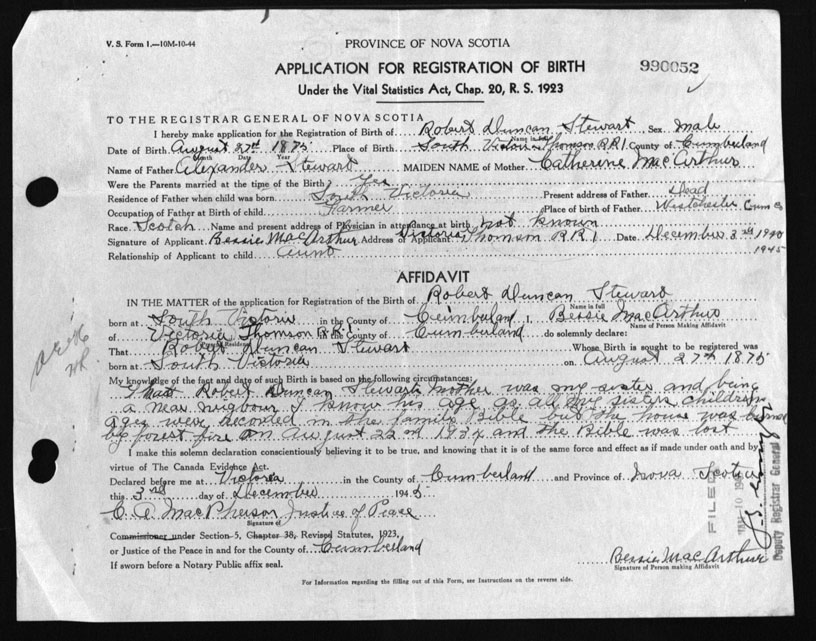 V. S. Form 1.—10M-10-44
PROVINCE OF NOVA SCOTIA
APPLICATION FOR REGISTRATION OF BIRTH
990052
Under the Vital Statistics Act, Chap. 20, R. S. 1923
TO THE REGISTRAR GENERAL OF NOVA SCOTIA
I hereby make application for the Registration of Birth of Robert Duncan Stewart Sex Male
Name in full
Date of Birth August 27th 1875 Place of Birth South Victoria Thomson R R 1 County of Cumberland
Month Date Year
Name of Father Alexander Stewart MAIDEN NAME of Mother Catherine MacArthur
Were the Parents married at the time of the Birth? Yes
Residence of Father when child was born South Victoria Present address of Father Dead
Occupation of Father at Birth of child Farmer Place of birth of Father Westchester Cum Co
Race Scotch Name and present address of Physician in attendance at birth not known
Signature of Applicant Bessie MacArthur Address of Applicant Victoria Thomson R R 1 Date December 3rd 1940
1945
Relationship of Applicant to child aunt
AFFIDAVIT
IN THE MATTER of the application for Registration of the Birth of Robert Duncan Stewart
Name in full
born at South Victoria in the County of Cumberland I, Bessie MacArthur
Name of Person Making Affidavit
of Victoria Thomson R.R.1. in the County of Cumberland do solemnly declare:
Residence
That Robert Duncan Stewart Whose Birth is sought to be registered was
born at South Victoria on August 27th 1875
My knowledge of the fact and date of such Birth is based on the following circumstances:
Robert Duncan Stewarts mother was my sister and being
a near neighbour I know his age as all my sisters children
ages were recorded in the family Bible but the house was burned
by forest fire on August 22nd and the Bible was lost
I make this solemn declaration conscientiously believing it to be true, and knowing that it is of the same force and effect as if made under oath and by
virtue of The Canada Evidence Act.
Declared before me at Victoria in the County of Cumberland and Province of Nova Scotia
this 3rd day of December 1945
C. A. MacPherson Justice of Peace
Signature of
Commissioner under Section 5, Chapter 38, Revised Statutes, 1923,
or Justice of the Peace in and for the County of Cumberland
If sworn before a Notary Public affix seal.
Bessie MacArthur
Signature of Person making Affidavit
For Information regarding the filling out of this Form, see Instructions on the reverse side.
FILED
Deputy Registrar General